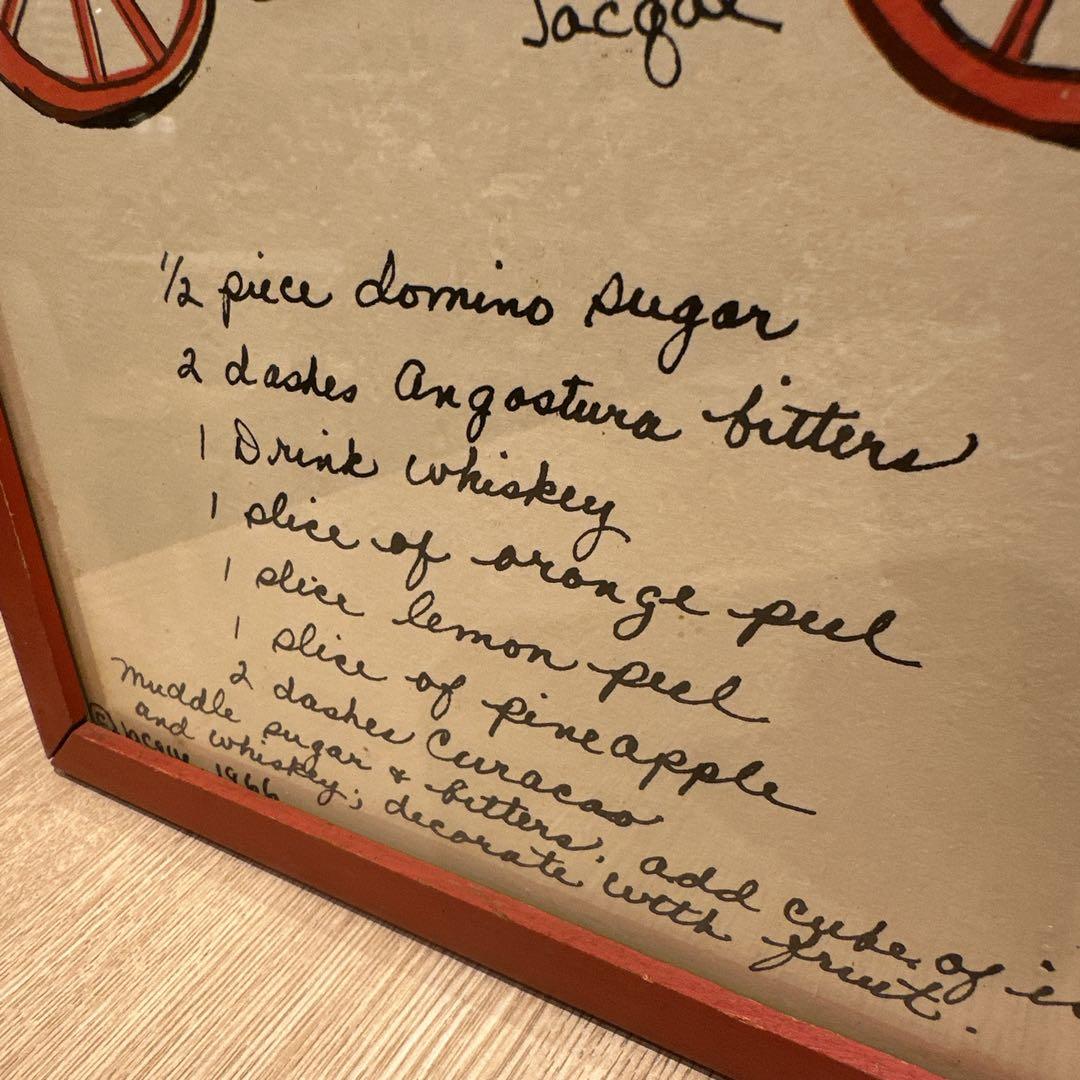 Jacque
1/2 piece domino sugar
2 dashes Angostura bitters
1 Drink whiskey
1 slice of orange peel
1 slice lemon peel
1 slice of pineapple
2 dashes Curacao
Muddle sugar & bitters, add cube of
and whiskey; decorate with fruit.
© Jacque 1966